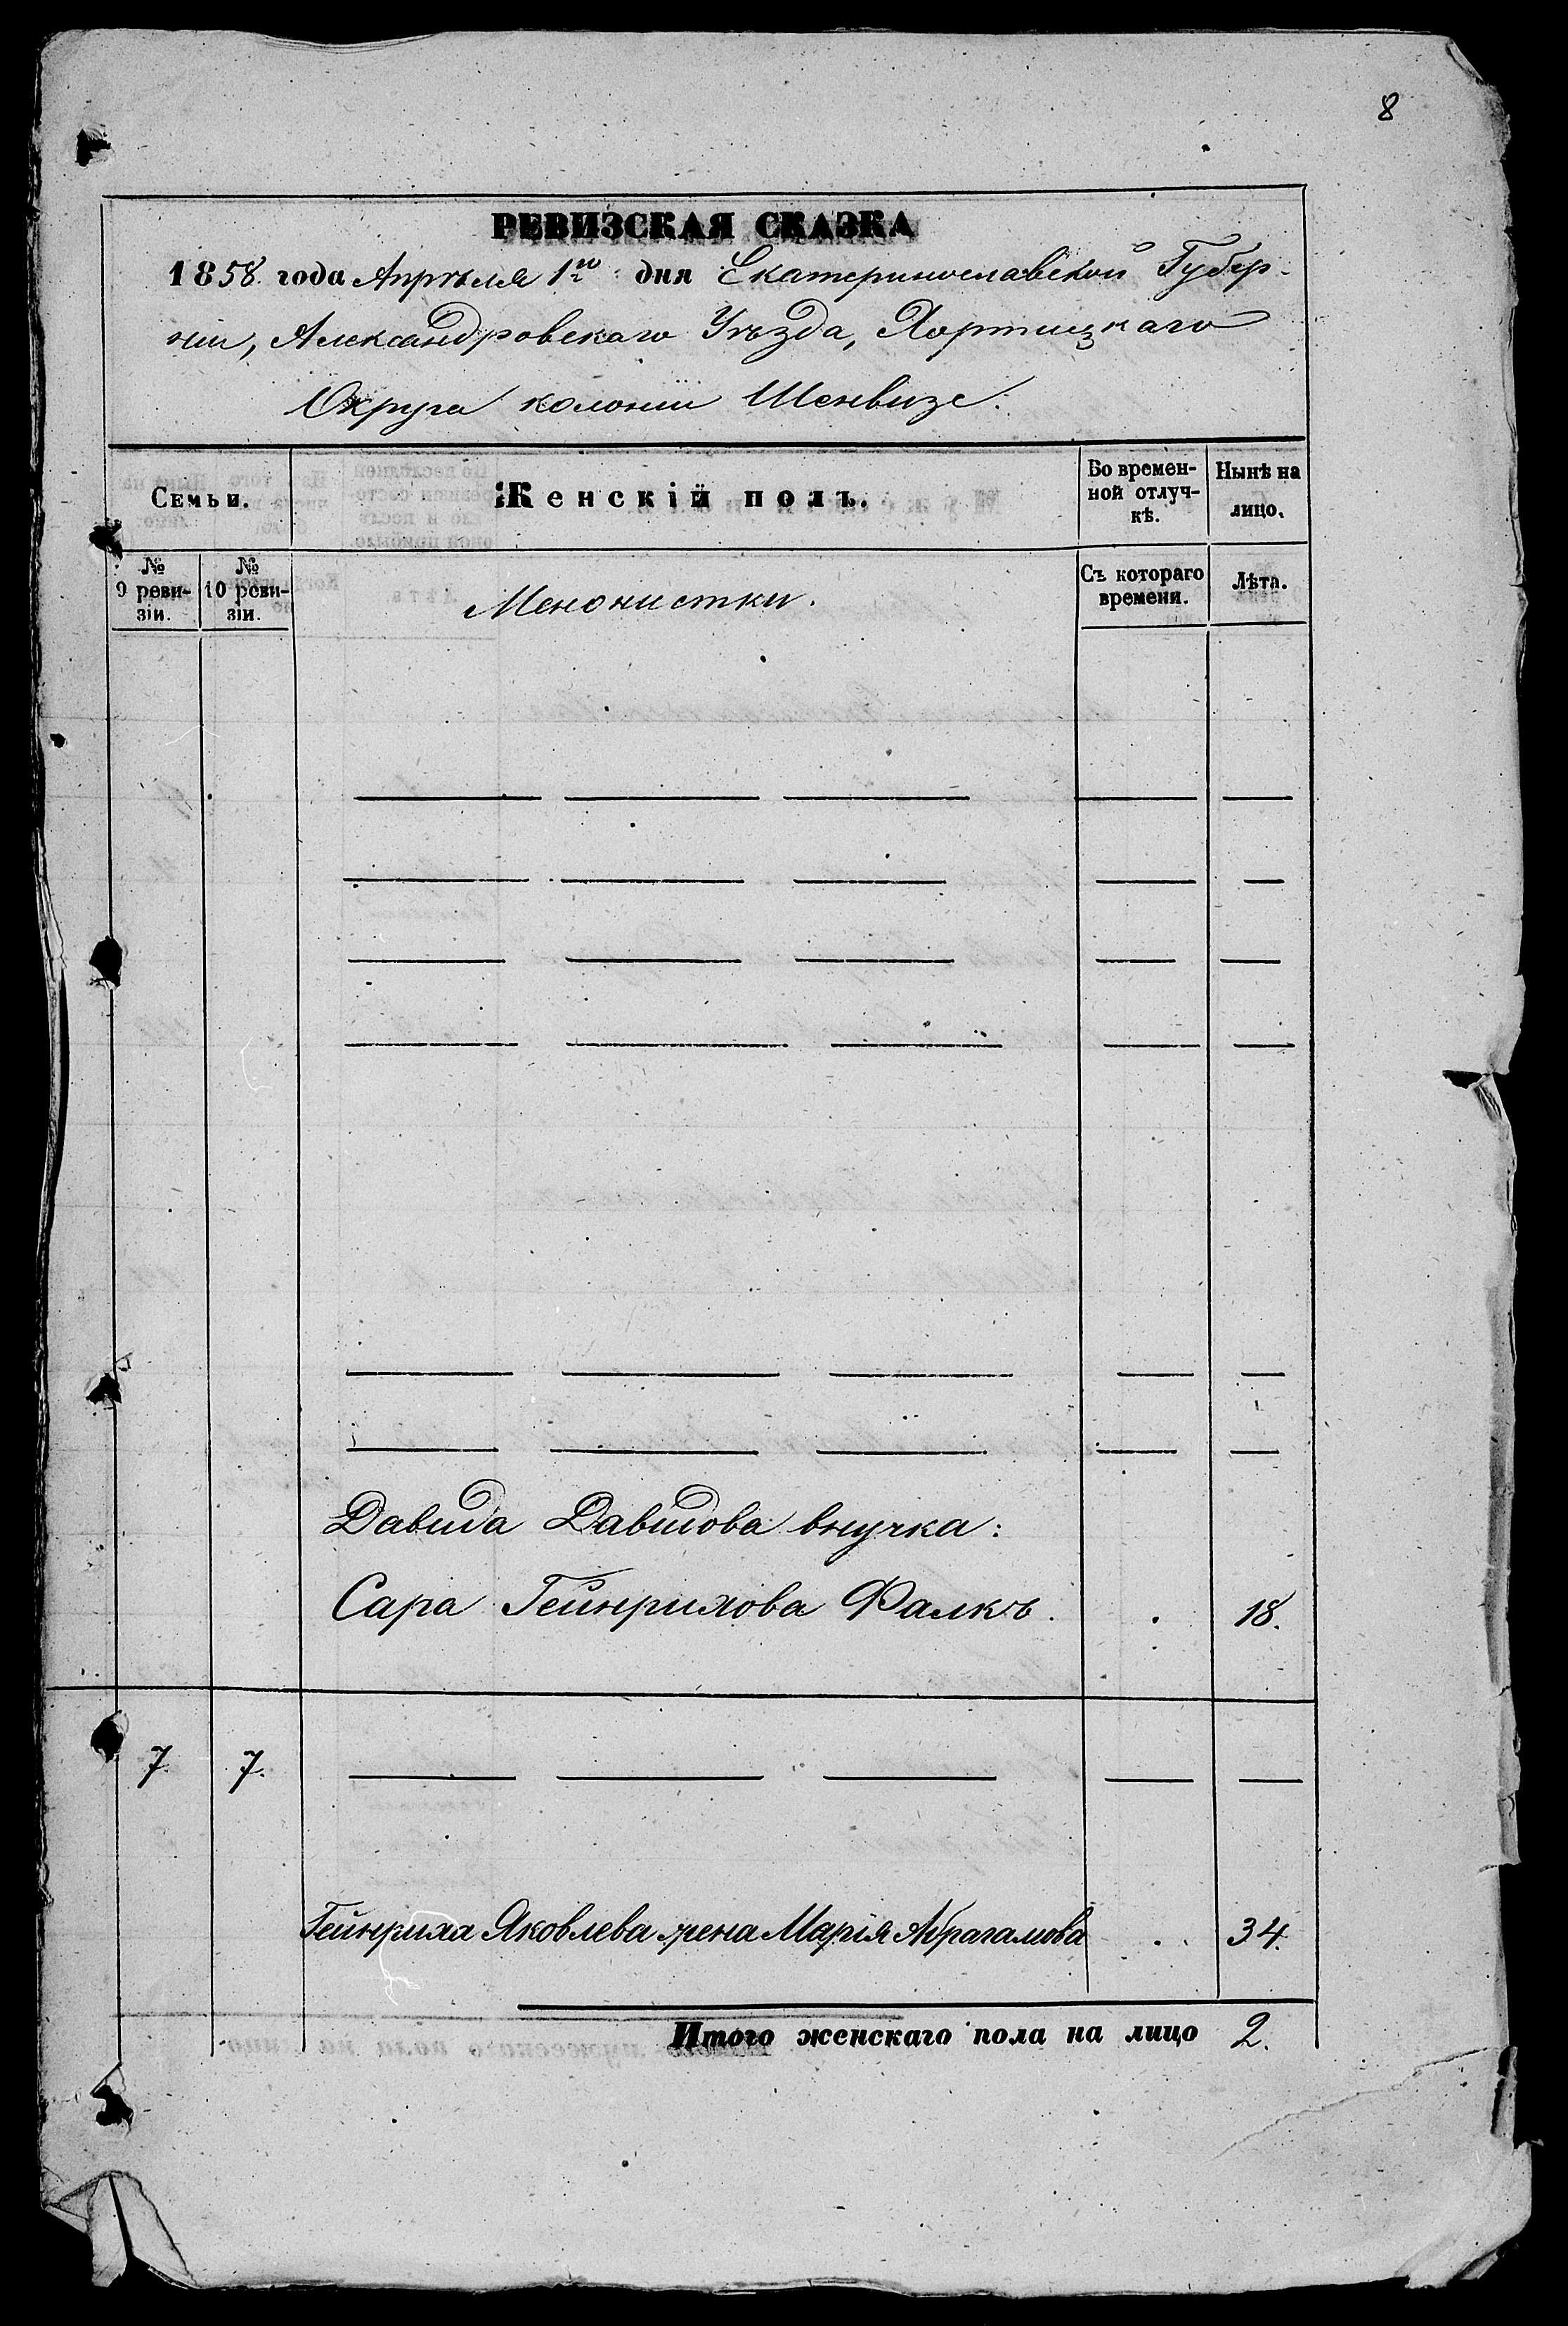 8
РЕВИЗСКАЯ СКАЗКА
1858 года Апрѣля 1го дня Екатеринославской Губер-
ніи, Александровскаго Уѣзда, Хортицкаго
Округа колоніи Шенвизе.
Семьи.
Женскій полъ.
Во времен-
ной отлуч-
кѣ.
Нынѣ на
лицо.
№
9 реви-
зіи.
№
10 реви-
зіи.
Менонистки.
Съ котораго
времени.
Лѣта.
Давида Давидова внучка:
Сара Гейнрихова Фалкъ. 18.
7. 7.
Гейнриха Яковлева жена Марія Абрагамова 34.
Итого женскаго пола на лицо 2.